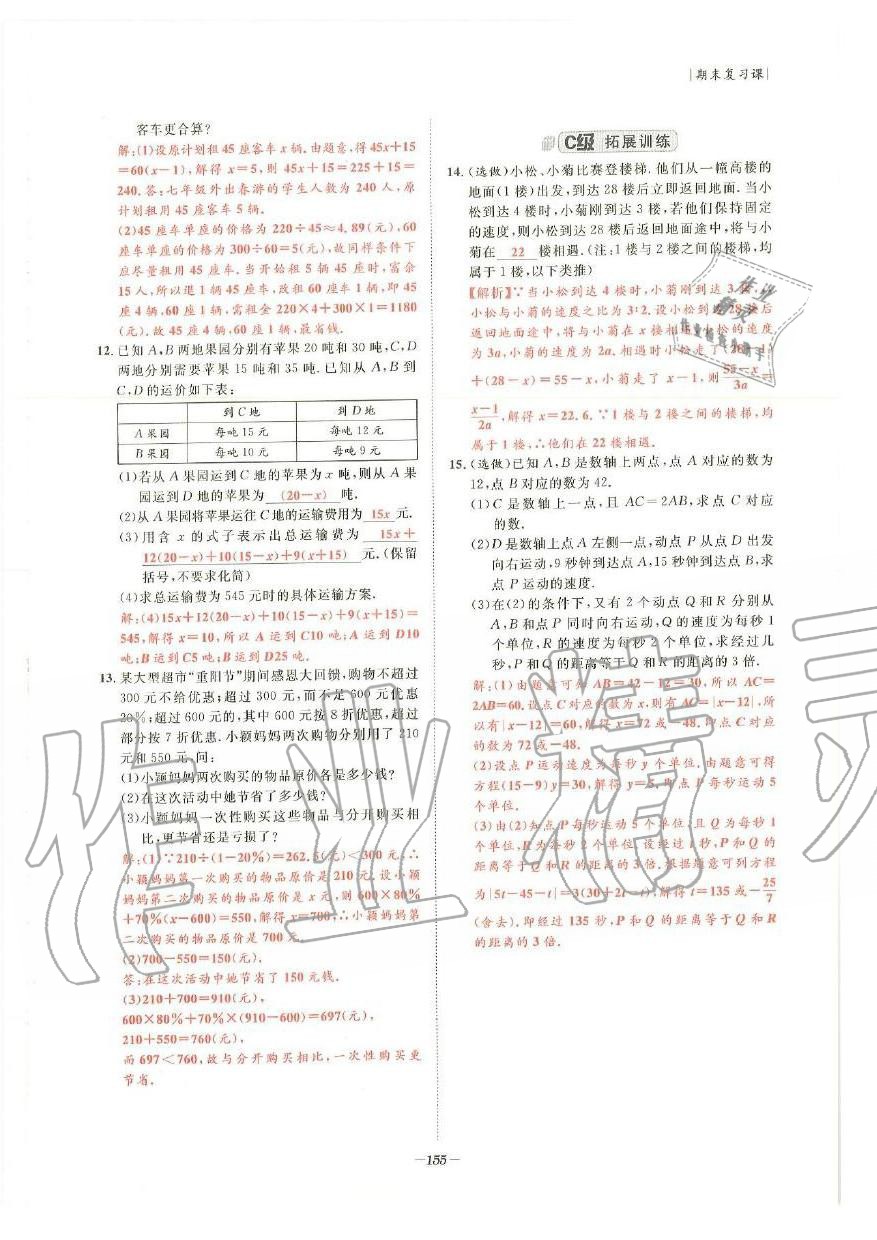 |期末复习课|
客车更合算?
解:(1)设原计划租45座客车x辆.由题意,得45x+15
=60(x-1),解得x=5,则45x+15=225+15=
240.答:七年级外出春游的学生人数为240人,原
计划租用45座客车5辆.
(2)45座车单座的价格为220÷45≈4.89(元),60
座车单座的价格为300÷60=5(元),故同样条件下
应尽量用45座车.当开始租5辆45座时,富余
15人,所以退1辆45座车,改租60座车1辆,即45
座4辆,60座1辆,需租金220×4+300×1=1180
(元).故45座4辆,60座1辆,最省钱.
12.已知A,B两地果园分别有苹果20吨和30吨,C,D
两地分别需要苹果15吨和35吨.已知从A,B到
C,D的运价如下表:
到C地 到D地
A果园 每吨15元 每吨12元
B果园 每吨10元 每吨9元
(1)若从A果园运到C地的苹果为x吨,则从A果
园运到D地的苹果为 (20-x) 吨.
(2)从A果园将苹果运往C地的运输费用为 15x 元.
(3)用含x的式子表示出总运输费为 15x+
12(20-x)+10(15-x)+9(x+15) 元.(保留
括号,不要求化简)
(4)求总运输费为545元时的具体运输方案.
解:(4)15x+12(20-x)+10(15-x)+9(x+15)=
545,解得x=10,所以A运到C10吨;A运到D10
吨;B运到C5吨;B运到D25吨.
13.某大型超市“重阳节”期间感恩大回馈,购物不超过
300元不给优惠;超过300元,而不足600元优惠
20%;超过600元的,其中600元按8折优惠,超过
部分按7折优惠.小颖妈妈两次购物分别用了210
元和550元,问:
(1)小颖妈妈两次购买的物品原价各是多少钱?
(2)在这次活动中她节省了多少钱?
(3)小颖妈妈一次性购买这些物品与分开购买相
比,更节省还是亏损了?
解:(1)∵210÷(1-20%)=262.5(元)<300元,∴
小颖妈妈第一次购买的物品原价是210元.设小颖
妈妈第二次购买的物品原价是x元,则600×80%
+70%(x-600)=550,解得x=700,∴小颖妈妈第
二次购买的物品原价是700元.
(2)700-550=150(元).
答:在这次活动中她节省了150元钱.
(3)210+700=910(元),
600×80%+70%×(910-600)=697(元),
210+550=760(元),
而697<760,故与分开购买相比,一次性购买更
节省.
C级 拓展训练
14.(选做)小松、小菊比赛登楼梯.他们从一幢高楼的
地面(1楼)出发,到达28楼后立即返回地面.当小
松到达4楼时,小菊刚到达3楼,若他们保持固定
的速度,则小松到达28楼后返回地面途中,将与小
菊在 22 楼相遇.(注:1楼与2楼之间的楼梯,均
属于1楼,以下类推)
【解析】∵当小松到达4楼时,小菊刚到达3楼,∴
小松与小菊的速度之比为3:2.设小松到达28楼后
返回地面途中,将与小菊在x楼相遇,小松的速度
为3a,小菊的速度为2a.相遇时小松走了(28-1)
+(28-x)=55-x,小菊走了x-1,则(55-x)/3a=
(x-1)/2a,解得x=22.6.∵1楼与2楼之间的楼梯,均
属于1楼,∴他们在22楼相遇.
15.(选做)已知A,B是数轴上两点,点A对应的数为
12,点B对应的数为42.
(1)C是数轴上一点,且AC=2AB,求点C对应
的数.
(2)D是数轴上A点左侧一点,动点P从点D出发
向右运动,9秒钟到达点A,15秒钟到达点B,求
点P运动的速度.
(3)在(2)的条件下,又有2个动点Q和R分别从
A,B和点P同时向右运动,Q的速度为每秒1
个单位,R的速度为每秒2个单位,求经过几
秒,P和Q的距离等于Q和R的距离的3倍.
解:(1)由题意可知AB=42-12=30,所以AC=
2AB=60.设点C对应的数为x,则有AC=|x-12|,所
以有|x-12|=60,解得x=72或-48.即点C对应
的数为72或-48.
(2)设点P运动速度为每秒y个单位.由题意可得
方程(15-9)y=30,解得y=5,即点P每秒运动5
个单位.
(3)由(2)知点P每秒运动5个单位,且Q为每秒1
个单位,R为每秒2个单位.设经过t秒后,P和Q的
距离等于Q和R的距离的3倍.根据题意可列方程
为|5t-45-t|=3(30+2t-t),解得t=135或-25/7
(舍去).即经过135秒,P和Q的距离等于Q和R
的距离的3倍.
-155-
作业精灵